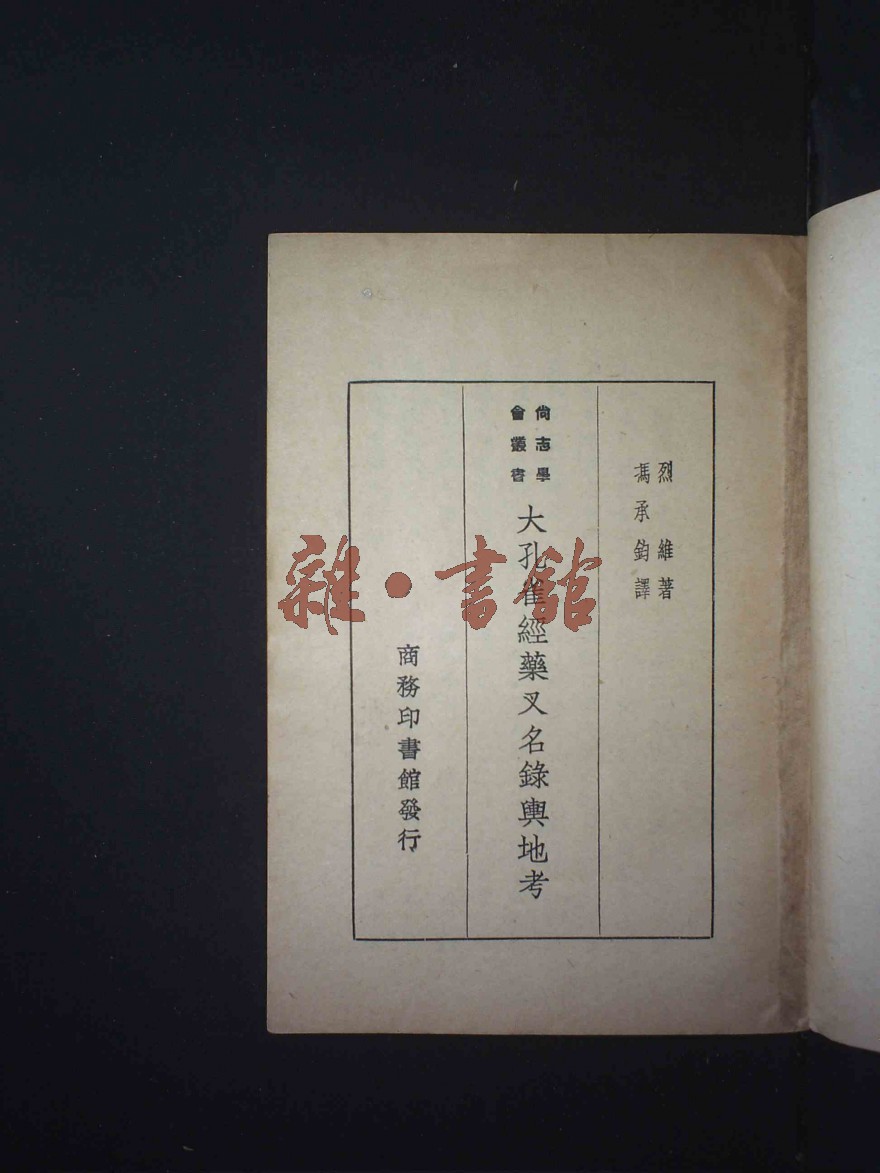 烈維著
馮承鈞譯
尚志學
會叢書
大孔雀經藥叉名錄輿地考
商務印書館發行
雜·書館